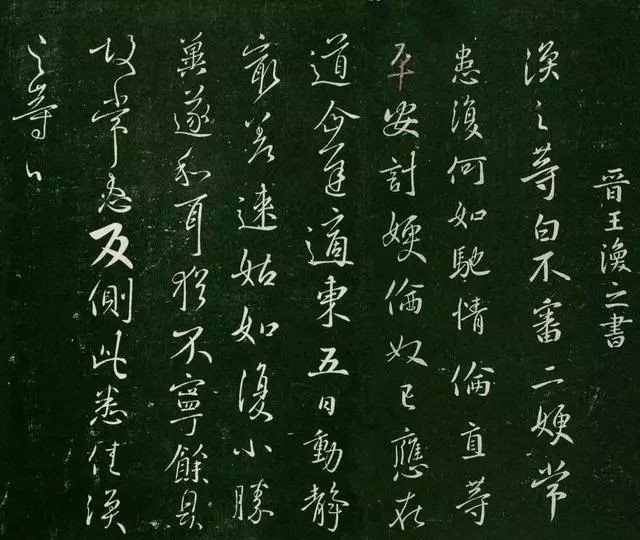 晉王渙之書
渙之等白不審二嫂常
患復何如馳情倫直等
平安計嫂倫奴已應在
道企遲適東五日動靜
差速姑如復小勝
冀遂和耳猶不寧餘具
故常反側此悉佳渙
之等白